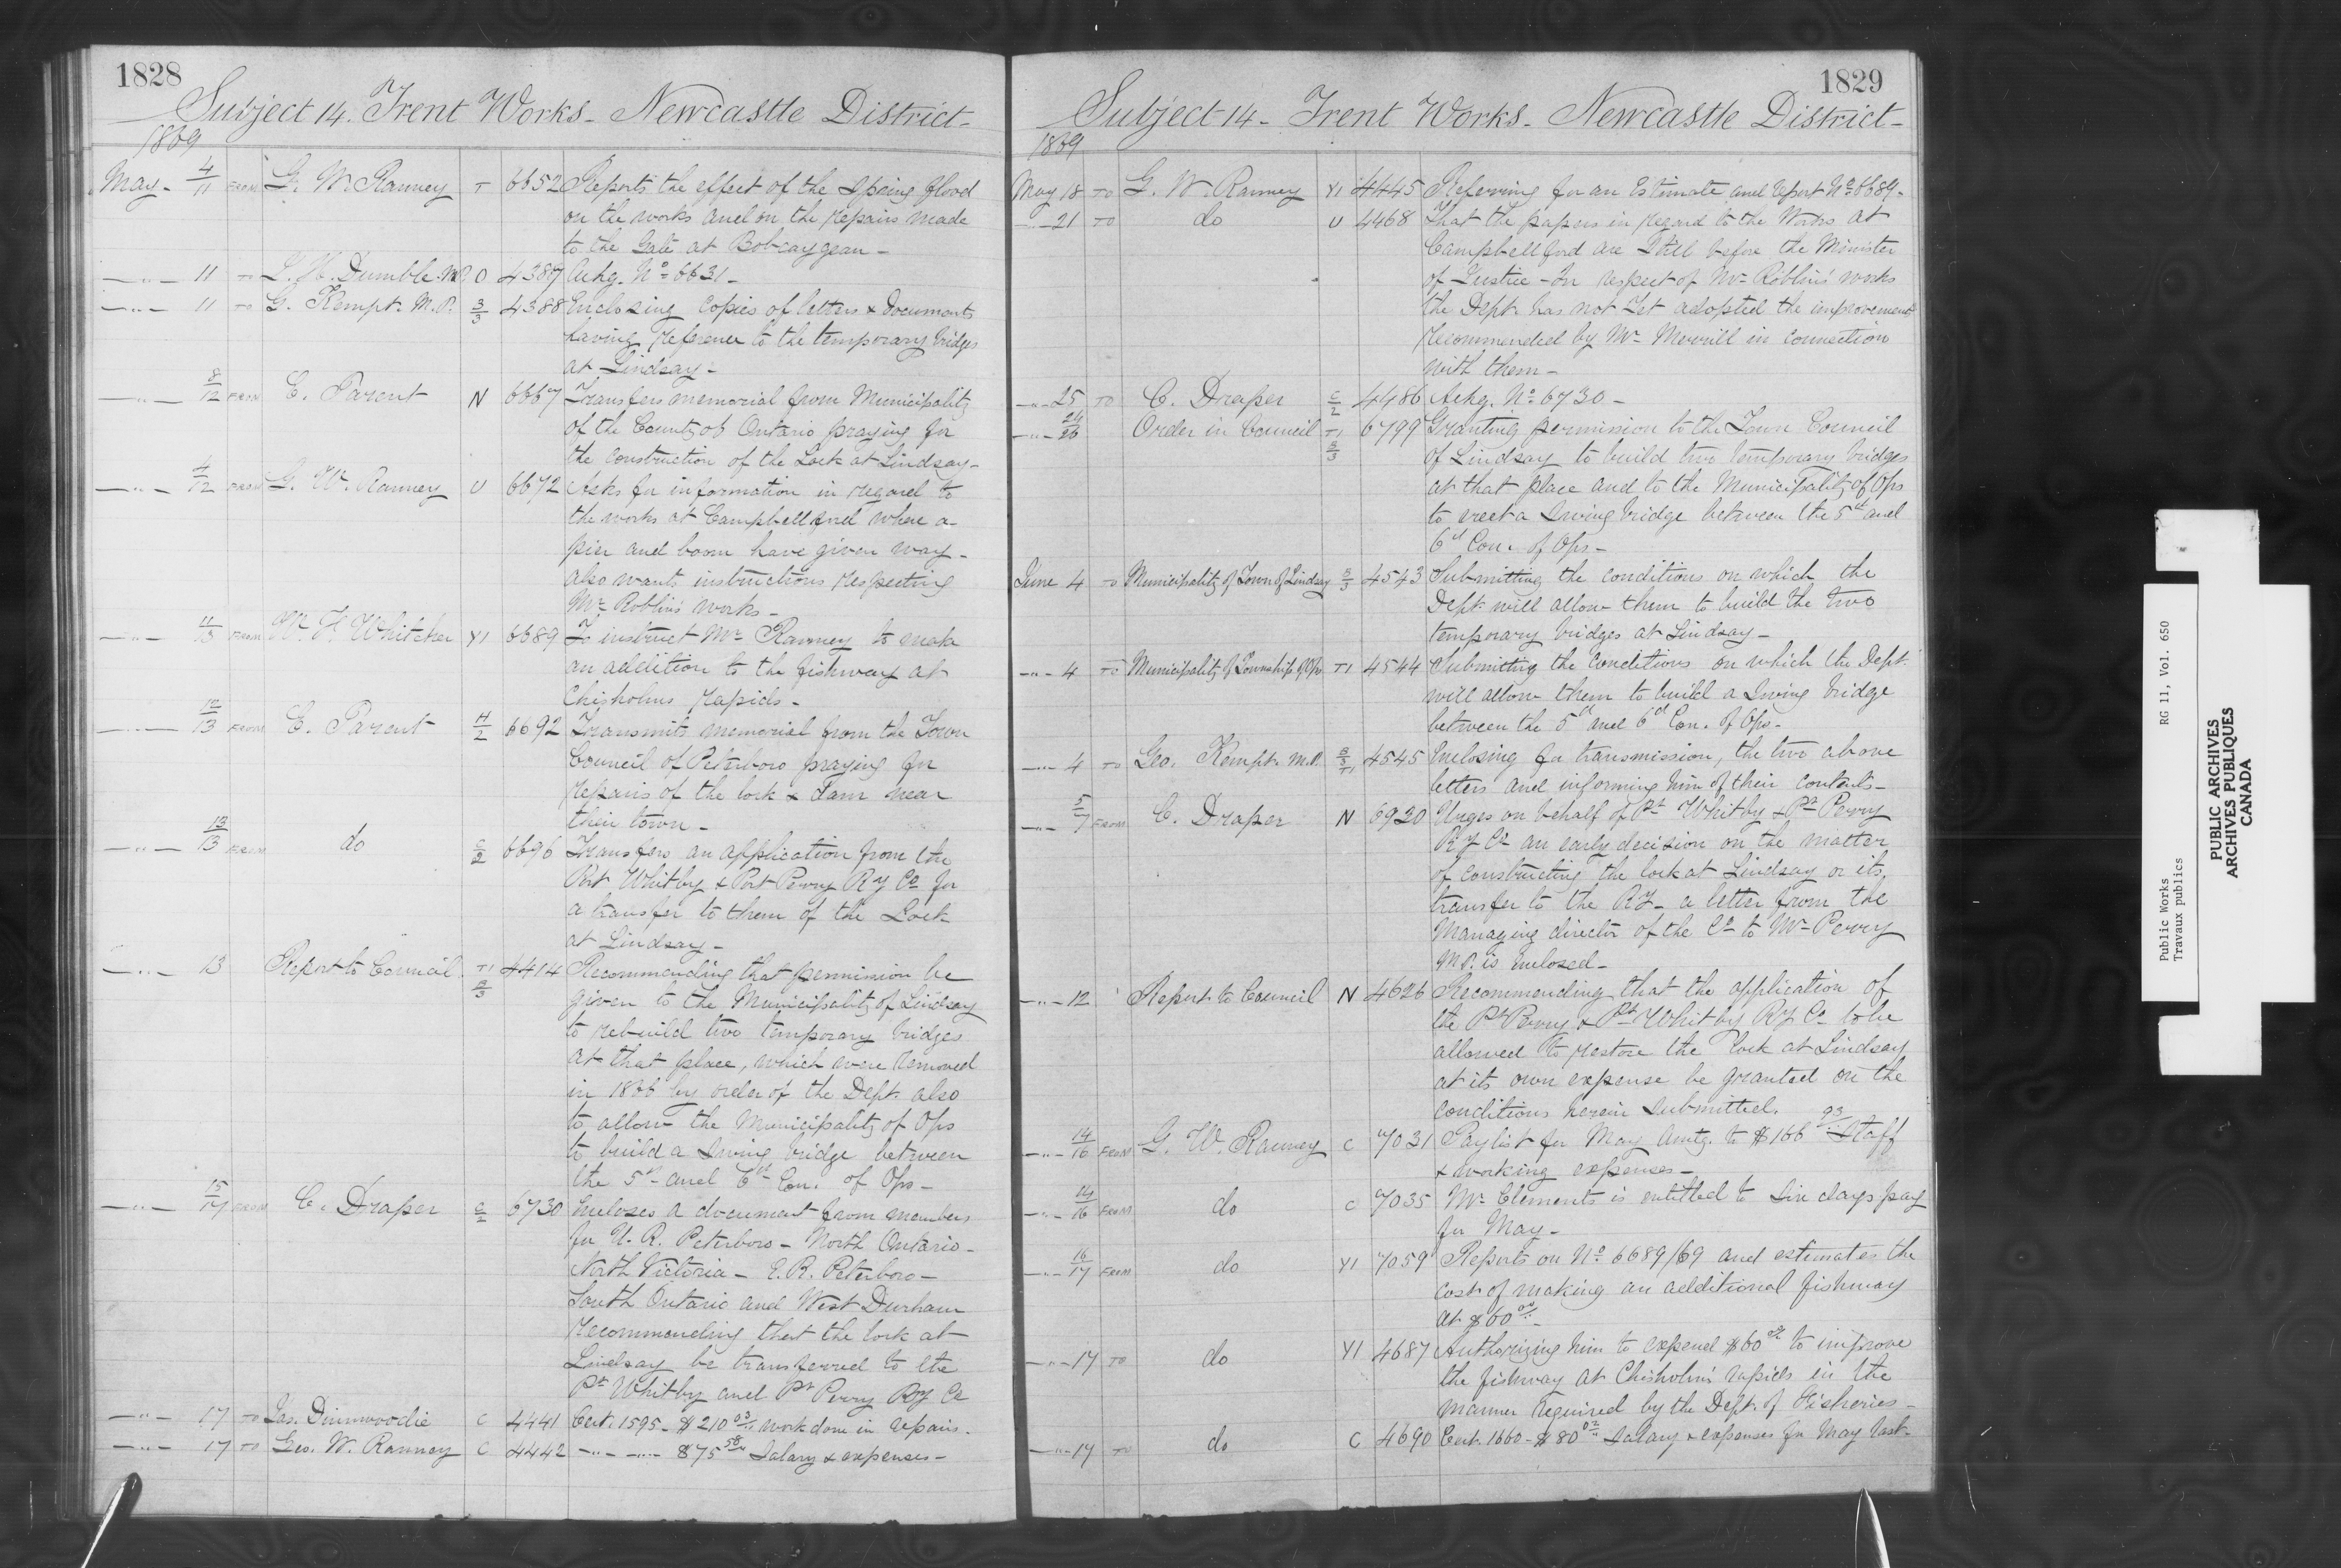 1828
Subject 14. Trent Works - Newcastle District -
1869
May - 4/11 FROM G. W. Ranney T 6652 Reports the effect of the Spring flood
on the works and on the repairs made
to the Gate at Bobcaygean -
— " — 11 TO J. H. Dumble. O 4387 Ackg. No. 6631 -
— " — 11 TO G. Kempt. M.P. 3/3 4388 Enclosing copies of letters & documents
having reference to the temporary bridges
at Lindsay -
— " — 8/12 FROM E. Parent N 6667 Transfers memorial from Municipality
of the County of Ontario praying for
the construction of the Lock at Lindsay -
— " — 4/12 FROM G. W. Ranney U 6672 Asks for information in regard to
the works at Campbellford where a
pier and boom have given way -
also wants instructions respecting
Mr. Roblin's works -
— " — 11/13 FROM W. F. Whitcher Y1 6689 To instruct Mr. Ranney to make
an addition to the fishway at
Chisholms rapids -
— " — 12/13 FROM E. Parent H/2 6692 Transmits memorial from the Town
Council of Peterboro praying for
repairs of the lock & Dam near
their town -
— " — 13/13 FROM do C/2 6696 Transfers an application from the
Port Whitby & Port Perry Ry Co for
a transfer to them of the Lock
at Lindsay -
— " — 13 Report to Council T1 3/3 4414 Recommending that permission be
given to the Municipality of Lindsay
to rebuild two temporary bridges
at that place, which were removed
in 1866 by order of the Dept. also
to allow the Municipality of Ops
to build a swing bridge between
the 5th and 6th Con. of Ops -
— " — 15/17 FROM C. Draper C/2 6730 Incloses a document from members
for U. R. Peterboro - North Ontario -
North Victoria - E. R. Peterboro -
South Ontario and West Durham
recommending that the lock at
Lindsay be transferred to the
Pt Whitby and Pt Perry Ry Co
— " — 17 TO Jas. Dinwoodie C 4441 Cert. 1595 - $210 03/ work done in repairs.
— " — 17 TO Geo. W. Ranney C 4442 — " — — " — $75 58/ Salary & expenses -
1829
Subject 14 - Trent Works - Newcastle District -
1869
May 18 TO G. W. Ranney Y1 4445 Referring for an Estimate and report No. 6689 -
— " — 21 TO do U 4468 That the papers in regard to the Works at
Campbellford are still before the Minister
of Justice - In respect of Mr. Roblin's works
the Dept. has not yet adopted the improvement
recommended by Mr. Merrill in connection
with them -
— " — 25 TO C. Draper C/2 4486 Ackg. No. 6730 -
— " — 24/26 Order in Council T1 3/3 6799 Granting permission to the Town Council
of Lindsay to build two temporary bridges
at that place and to the Municipality of Ops
to erect a swing bridge between the 5th and
6th Con. of Ops -
June 4 TO Municipality of Town of Lindsay 3/3 4543 Submitting the conditions on which the
Dept. will allow them to build the two
temporary bridges at Lindsay -
— " — 4 TO Municipality of Township of Ops T1 4544 Submitting the conditions on which the Dept.
will allow them to build a swing bridge
between the 5th and 6th Con. of Ops -
— " — 4 TO Geo. Kempt. M.P. 3/3 T1 4545 Inclosing for transmission, the two above
letters and informing him of their contents -
— " — 5/7 FROM C. Draper N 6920 Urges on behalf of Pt Whitby & Pt Perry
Ry Co an early decision on the matter
of constructing the lock at Lindsay or its
transfer to the Ry - a letter from the
Managing director of the Co to Mr. Perry
M.P. is inclosed -
— " — 12 Report to Council N 4626 Recommending that the application of
the Pt Perry & Pt Whitby Ry Co to be
allowed to restore the lock at Lindsay
at its own expense be granted on the
conditions herein submitted.
— " — 14/16 FROM G. W. Ranney C 7031 Paylist for May Amtg. to $166 93/ Staff
& working expenses -
— " — 14/16 FROM do C 7035 Mr. Clements is entitled to six days pay
for May -
— " — 16/17 FROM do Y1 7059 Reports on No. 6689/69 and estimates the
cost of making an additional fishway
at $60 00/ -
— " — 17 TO do Y1 4687 Authorizing him to expend $60 00/ to improve
the fishway at Chisholm's rapids in the
manner required by the Dept. of Fisheries -
— " — 17 TO do C 4690 Cert. 1660 - $80 02/ Salary & expenses for May last
Public Works
Travaux publics
RG 11, Vol. 650
PUBLIC ARCHIVES
ARCHIVES PUBLIQUES
CANADA